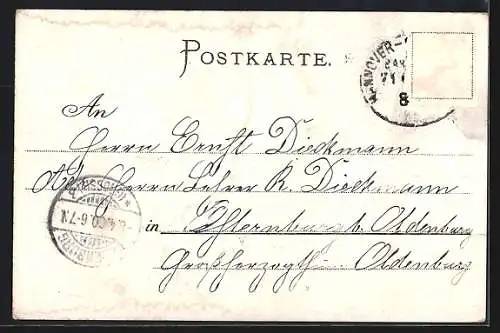 POSTKARTE.
HANNOVER
8
An
Herrn Ernst Dieckmann
Herrn Lehrer K. Dieckmann
6-7N
in Osternburg b. Oldenburg
Großherzogth. Oldenburg